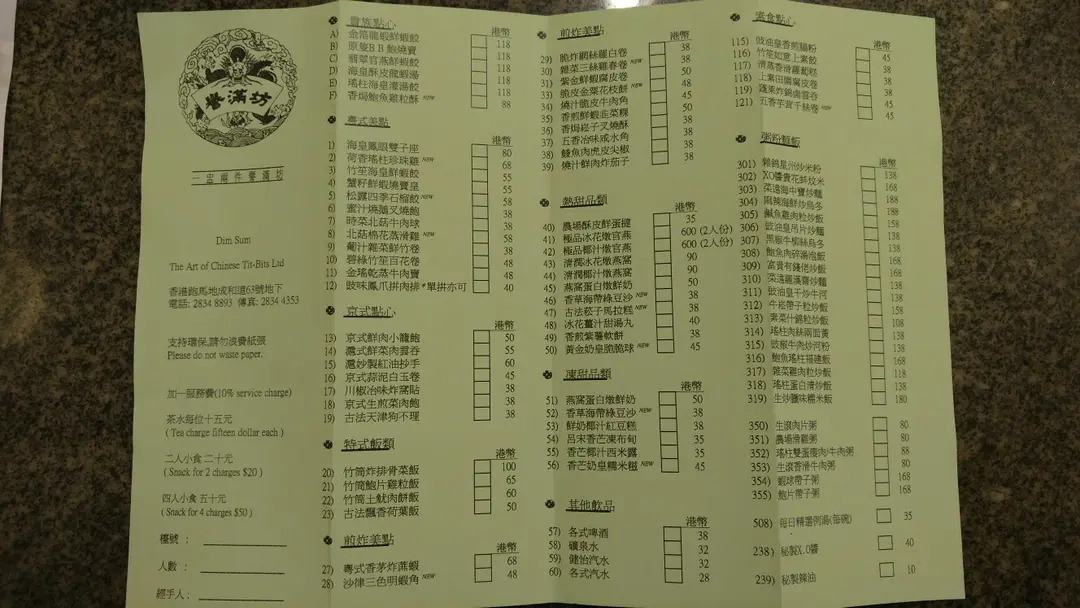 譽滿坊
一盅兩件譽滿坊
Dim Sum
The Art of Chinese Tit-Bits Ltd
香港跑馬地成和道63號地下
電話: 2834 8893 傳真: 2834 4353
支持環保,請勿浪費紙張
Please do not waste paper.
加一服務費(10% service charge)
茶水每位十五元
( Tea charge fifteen dollar each )
二人小食 二十元
( Snack for 2 charges $20 )
四人小食 五十元
( Snack for 4 charges $50 )
檯號 :
人數 :
經手人 :
貴族點心 港幣
A) 金箔龍蝦鮮蝦餃 118
B) 原隻B B 鮑燒賣 118
C) 翡翠官燕鮮蝦餃 118
D) 海皇酥皮龍蝦湯 118
E) 瑤柱海皇灌湯餃 118
F) 香焗鮑魚雞粒酥 NEW 88
粵式美點 港幣
1) 海皇鳳眼雙子座 80
2) 荷香瑤柱珍珠雞 NEW 68
3) 竹笙海皇鮮蝦餃 55
4) 蟹籽鮮蝦燒賣皇 55
5) 松露四季石榴餃 NEW 58
6) 蜜汁燒麵叉燒飽 38
7) 時菜北菇牛肉球 38
8) 北菇棉花蒸滑雞 NEW 58
9) 葡汁雜菜鮮竹卷 38
10) 碧綠竹笙百花卷 48
11) 金瑤乾蒸牛肉賣 48
12) 豉味鳳爪拼肉排 *單拼亦可 40
京式點心 港幣
13) 京式鮮肉小龍飽 50
14) 滬式鮮菜肉雲吞 55
15) 滬炒製紅油抄手 60
16) 京式蒜泥白玉卷 45
17) 川椒冶味炸窩貼 38
18) 京式生煎菜肉飽 38
19) 古法天津狗不理 38
特式飯類 港幣
20) 竹筒炸排骨菜飯 100
21) 竹筒鮑片雞粒飯 65
22) 竹筒土魷肉餅飯 60
23) 古法飄香荷葉飯 50
煎炸美點 港幣
27) 粵式香茅炸蔗蝦 68
28) 沙律三色明蝦角 NEW 48
煎炸美點 港幣
29) 脆炸網絲蘿白卷 38
30) 雜菜三絲雞春卷 NEW 38
31) 紫金鮮蝦腐皮卷 50
32) 脆皮金粟花枝餅 NEW 48
33) 燒汁脆皮牛肉角 45
34) 香煎鮮蝦韭菜粿 50
35) 香焗崧子叉燒酥 38
36)
37) 五香冶味咸水角 38
38) 鯪魚肉虎皮尖椒 38
39) 燒汁鮮肉炸茄子 38
熱甜品類 港幣
40) 農場酥皮鮮蛋撻 35
41) 極品冰花燉官燕 600 (2人份)
42) 極品椰汁燉官燕 600 (2人份)
43) 清潤冰花燉燕窩 90
44) 清潤椰汁燉燕窩 90
45) 燕窩蛋白燉鮮奶 50
46) 香草海帶綠豆沙 NEW 38
47) 古法菘子馬拉糕 NEW 38
48) 冰花薑汁甜湯丸 40
49) 香煎紫薯軟餅 38
50) 黃金奶皇脆脆球 NEW 50
凍甜品類 港幣
51) 燕窩蛋白燉鮮奶 50
52) 香草海帶綠豆沙 NEW 38
53) 鮮奶椰汁紅豆糕 38
54) 呂宋香芒凍布甸 35
55) 香芒椰汁西米露 35
56) 香芒奶皇糯米糍 NEW 45
其他飲品 港幣
57) 各式啤酒 38
58) 礦泉水 32
59) 健怡汽水 32
60) 各式汽水 28
素食點心 港幣
115) 豉油皇香煎腸粉 45
116) 竹笙如意上素餃 38
117) 清蒸香滑蘿蔔糕 38
118) 上素田園腐皮卷 48
119) 蓬萊炸鍋鹵雲吞 45
121) 五香芋茸千絲卷 NEW 45
粥粉麵飯 港幣
301) 雜鶴星州炒米粉 138
302) XO醬貴花蚌炆米 168
303) 菜遠海中寶炒麵 168
304) 麻辣海鮮炒烏冬 188
305) 鹹魚雞肉粒炒飯 158
306) 豉油皇吊片炒麵 138
307) 黑椒牛柳絲烏冬 138
308) 鮑魚肉碎湯泡飯 138
309) 富貴有錢佬炒飯 138
310) 菜遠羅漢齋炒麵 138
311) 豉油皇干炒牛河 138
312) 牛崧帶子粒炒飯 138
313) 素菜什錦粒炒飯 108
314) 瑤柱肉絲兩面黃 138
315) 豉椒牛肉炒河粉 138
316) 鮑魚瑤柱福建飯 168
317) 雜菜雞肉粒炒飯 118
318) 瑤柱蛋白清炒飯 138
319) 生炒臘味糯米飯 180
350) 生滾肉片粥 80
351) 農場滑雞粥 80
352) 瑤柱雙蛋瘦肉/牛肉粥 88
353) 生滾香滑牛肉粥 80
354) 蝦球帶子粥 168
355) 鮑片帶子粥 168
508) 每日精選例湯(每碗) 35
238) 秘製X.O醬 40
239) 秘製辣油 10